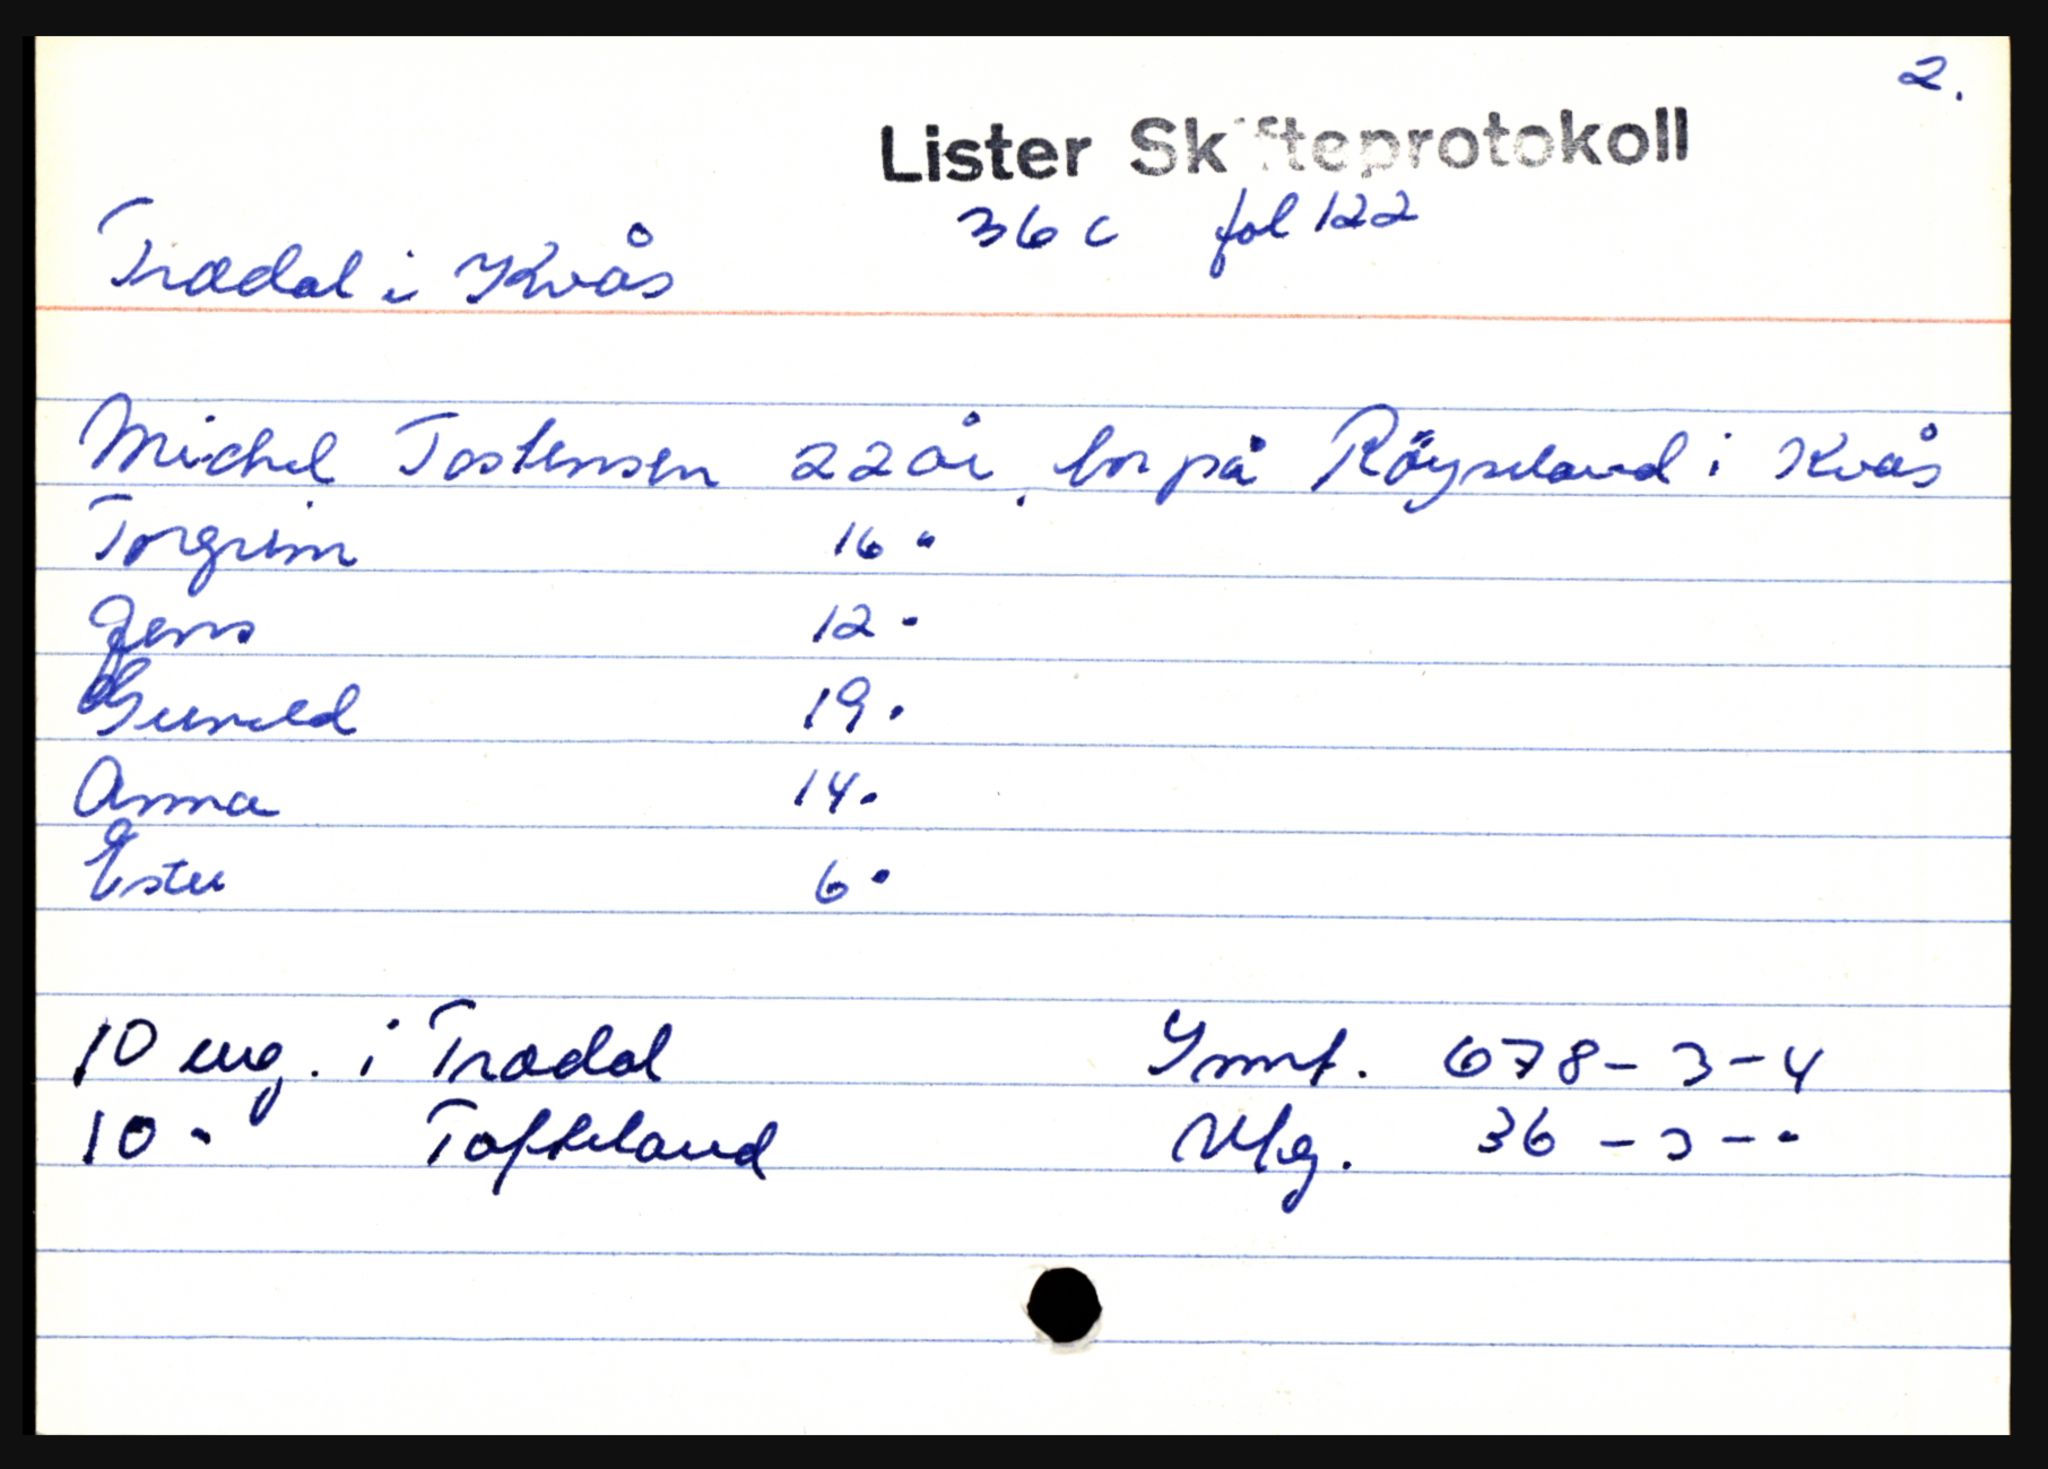 2.
Lister Skifteprotokoll
36 c fol 122
Trædal i Kvås
Michel Tostensen 22 år, bor på Röyseland i Kvås
Torgrim 16 "
Jens 12 "
Gunild 19 "
Anna 14 "
Ester 6 "
10 eng. i Trædal Innt. 678 - 3 - 4
10 " Tofteland Utg. 36 - 3 - "